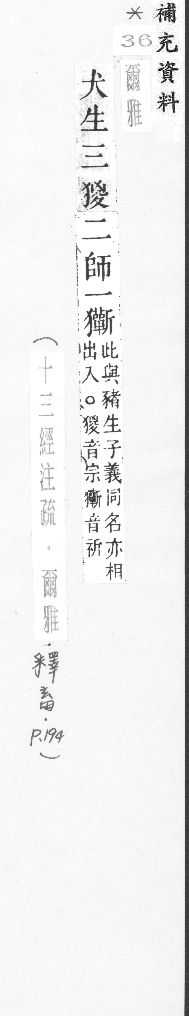 補充資料
* 36
爾雅
犬生三猣二師一獑
此與豬生子義同名亦相
出入。猣音宗獑音祈
(十三經注疏.爾雅.釋畜.P.194)